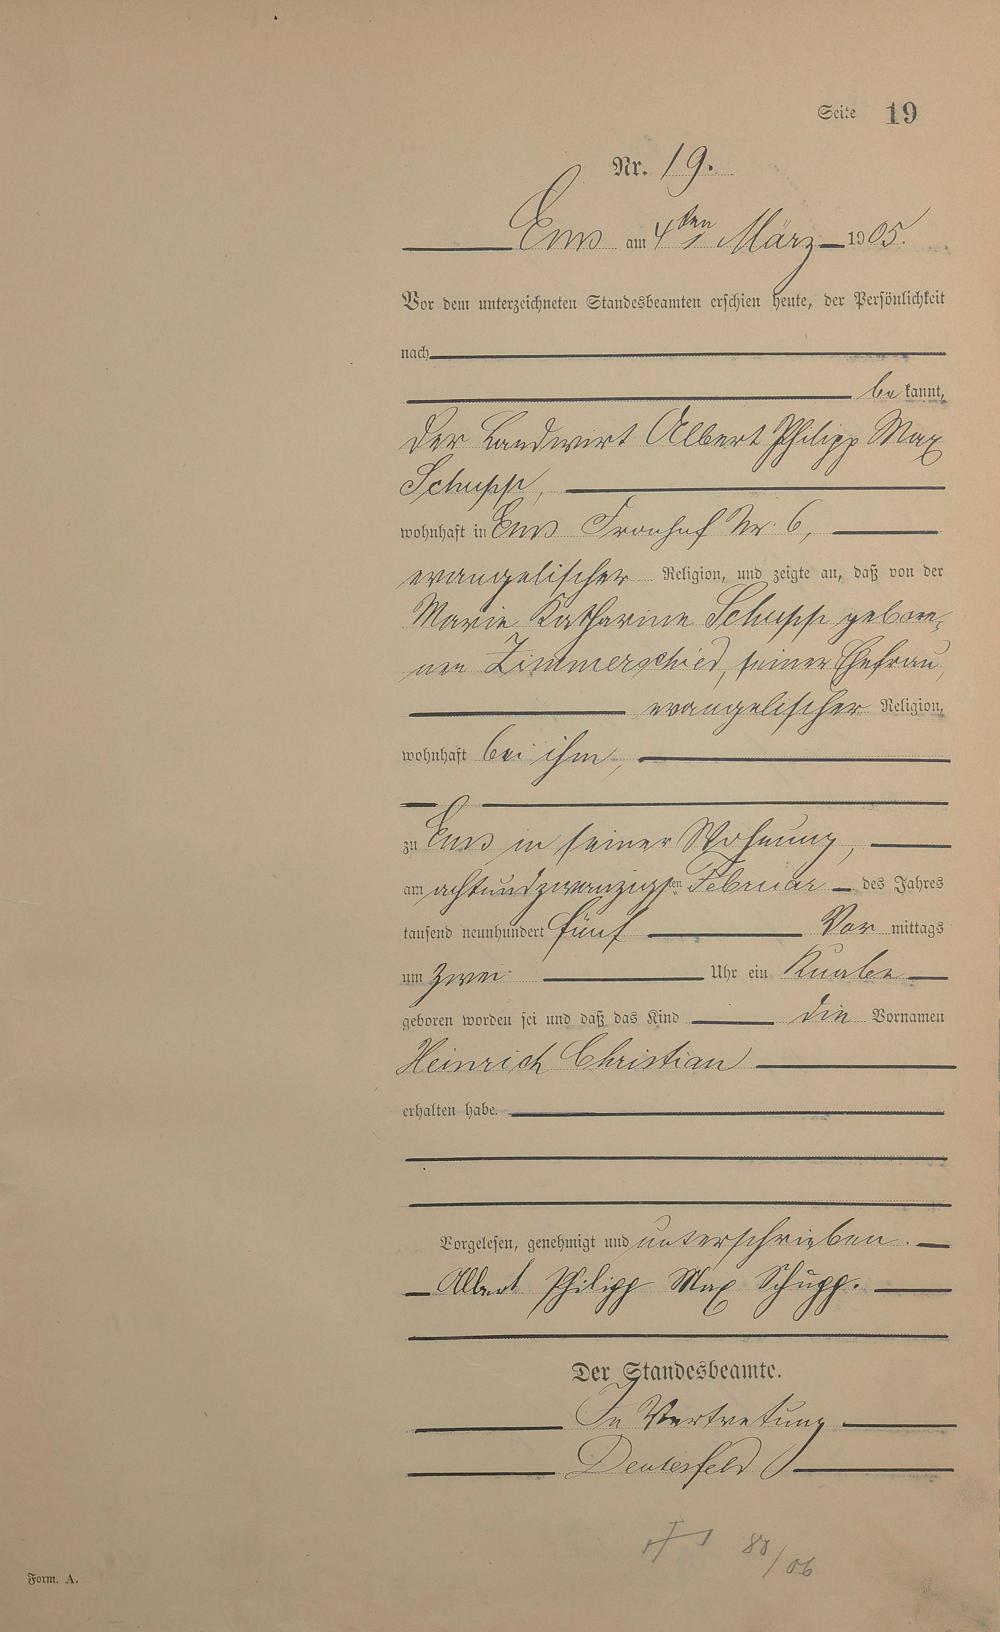 Seite 19
Nr. 19.
Ems am 4ten März 1905.
Vor dem unterzeichneten Standesbeamten erschien heute, der Persönlichkeit
nach
be kannt,
der Landwirt Albert Philipp Max
Schupp,
wohnhaft in Ems Fronhof Nr. 6,
evangelischer Religion, und zeigte an, daß von der
Marie Katharine Schupp gebore-
nen Zimmerschied, seiner Ehefrau,
evangelischer Religion,
wohnhaft bei ihm,
zu Ems in seiner Wohnung,
am achtundzwanzigsten Februar des Jahres
tausend neunhundert fünf Vor mittags
um zwei Uhr ein Knabe
geboren worden sei und daß das Kind die Vornamen
Heinrich Christian
erhalten habe.
Vorgelesen, genehmigt und unterschrieben.
Albert Philipp Max Schupp.
Der Standesbeamte.
In Vertretung
88/06
Form. A.